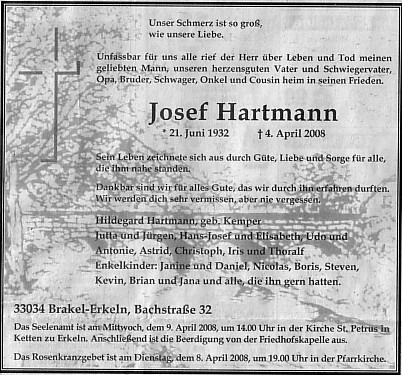 Unser Schmerz ist so groß,
wie unsere Liebe.
Unfassbar für uns alle rief der Herr über Leben und Tod meinen
geliebten Mann, unseren herzensguten Vater und Schwiegervater,
Opa, Bruder, Schwager, Onkel und Cousin heim in seinen Frieden.
Josef Hartmann
* 21. Juni 1932 † 4. April 2008
Sein Leben zeichnete sich aus durch Güte, Liebe und Sorge für alle,
die ihm nahe standen.
Dankbar sind wir für alles Gute, das wir durch ihn erfahren durften.
Wir werden dich sehr vermissen, aber nie vergessen.
Hildegard Hartmann, geb. Kemper
Jutta und Jürgen, Hans-Josef und Elisabeth, Udo und
Antonie, Astrid, Christoph, Iris und Thoralf
Enkelkinder: Janine und Daniel, Nicolas, Boris, Steven,
Kevin, Brian und Jana und alle, die ihn gern hatten.
33034 Brakel-Erkeln, Bachstraße 32
Das Seelenamt ist am Mittwoch, dem 9. April 2008, um 14.00 Uhr in der Kirche St. Petrus in
Ketten zu Erkeln. Anschließend ist die Beerdigung von der Friedhofskapelle aus.
Das Rosenkranzgebet ist am Dienstag, dem 8. April 2008, um 19.00 Uhr in der Pfarrkirche.